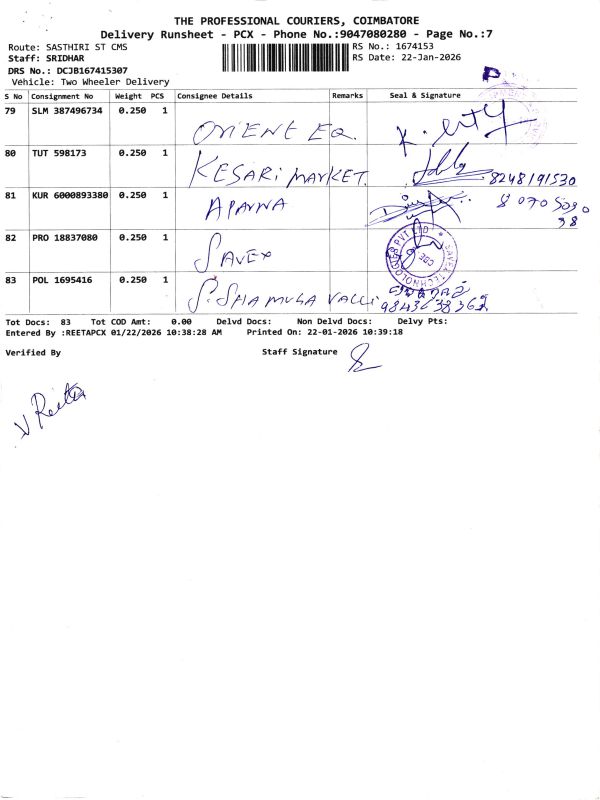 THE PROFESSIONAL COURIERS, COIMBATORE
Delivery Runsheet - PCX - Phone No.:9047080280 - Page No.:7
Route: SASTHIRI ST CMS
RS No.: 1674153
Staff: SRIDHAR
RS Date: 22-Jan-2026
DRS No.: DCJB167415307
Vehicle: Two Wheeler Delivery
S No Consignment No Weight PCS Consignee Details Remarks Seal & Signature
79 SLM 387496734 0.250 1 ORIENT EQ.
80 TUT 598173 0.250 1 KESARI MARKET. 8248191530
81 KUR 6000893380 0.250 1 APARNA 8 0705030
38
82 PRO 18837080 0.250 1 SAVEX
83 POL 1695416 0.250 1 S. SHAMUGA VALLI
Tot Docs: 83 Tot COD Amt: 0.00 Delvd Docs: Non Delvd Docs: Delvy Pts:
Entered By :REETAPCX 01/22/2026 10:38:28 AM Printed On: 22-01-2026 10:39:18
Verified By Staff Signature
V Reeta